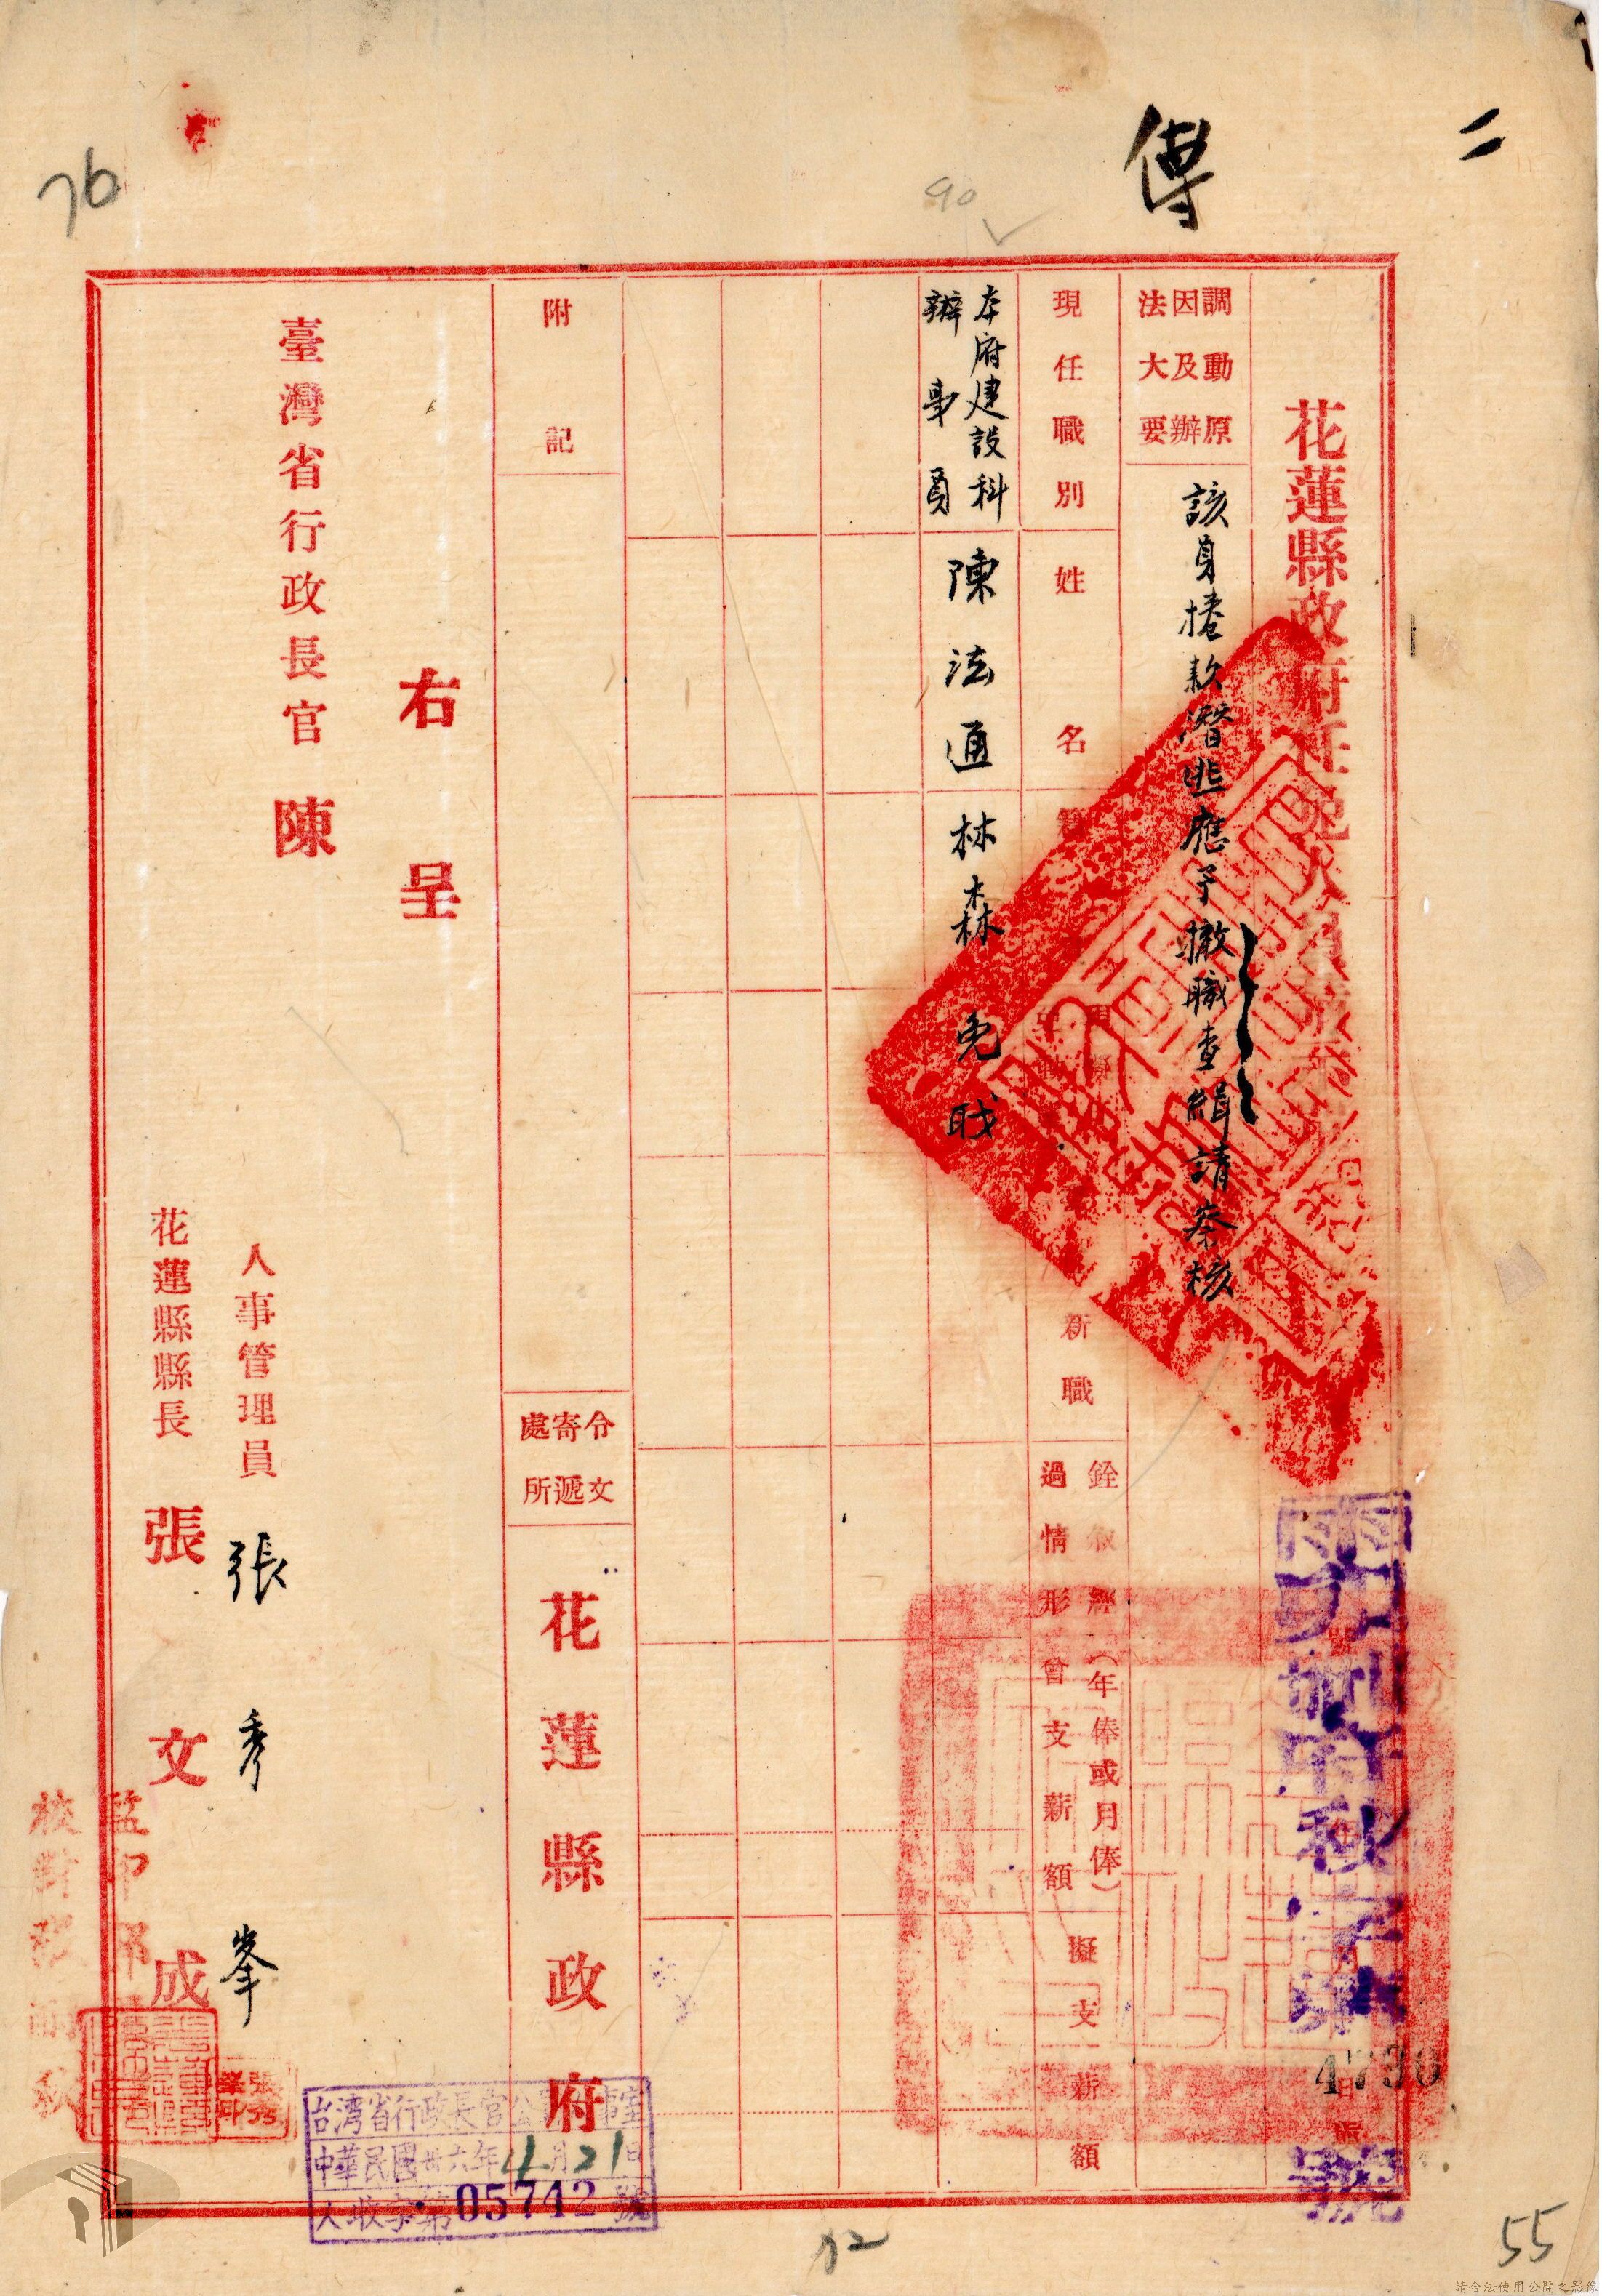 二
傳
90
76
花蓮縣政府任免人員
調動原
因及辦
法大要
該員捲款潛逃應予撤職查緝請察核
現任職別
姓名
籍
擬
新職
銓敘經
過情形
曾支薪額
(年俸或月俸)
擬支薪額
本府建設科
辦事員
陳法通
林森
免職
附記
令文
寄遞
處所
花蓮縣政府
右呈
臺灣省行政長官陳
人事管理員
張秀峯
花蓮縣縣長
張文成
監印
校對
府秘字第
4730
號
台湾省行政長官公
事室
中華民國卅六年4月21日
人收字第05742號
72
55
請合法使用公開之影像